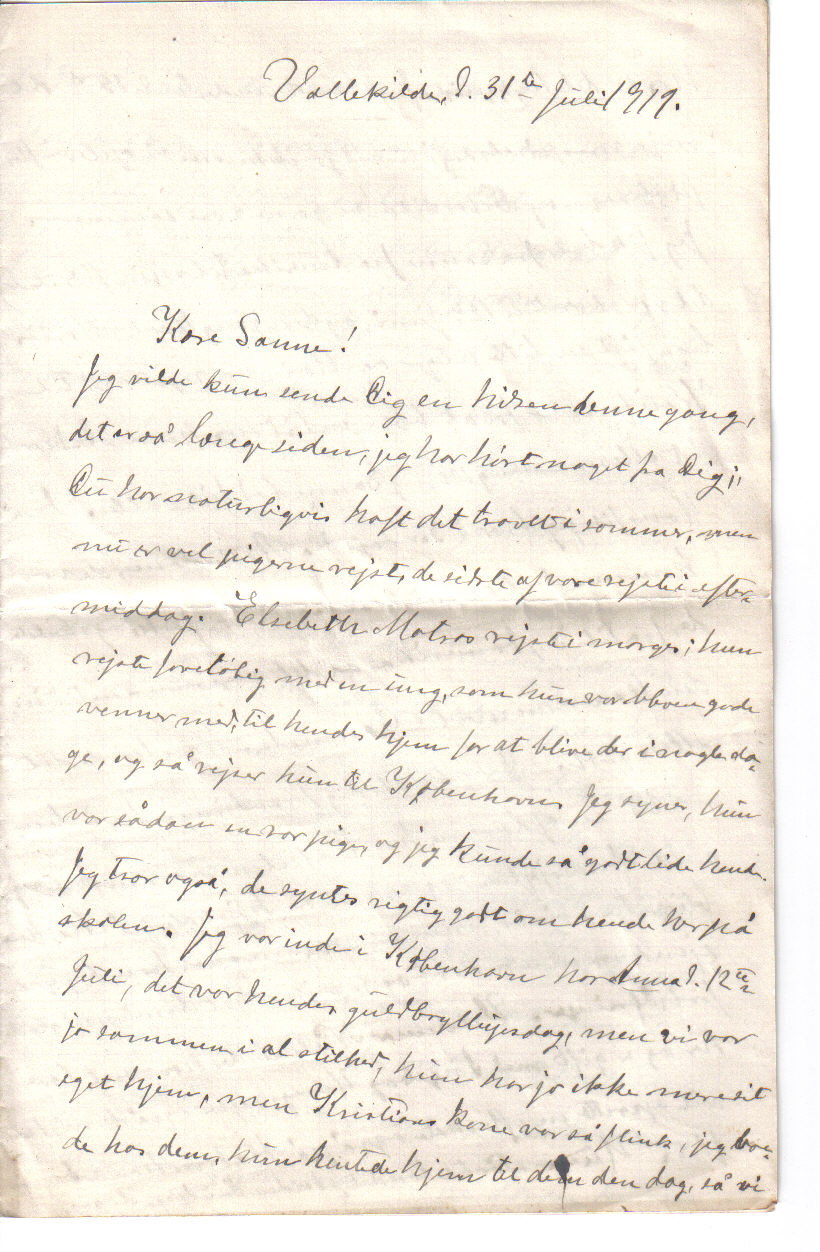 Vallekilde, d. 31te Juli 1919.
Kære Sanne!
Jeg vilde kun sende Dig en hilsen denne gang,
det er så længe siden, jeg har hørt noget fra Dig;
Du har naturligvis haft det travlt i sommer, men
nu er vel pigerne rejst, de sidste af vore rejste i efter-
middag. Elsebeth Matras rejste i morges; hun
rejste foreløbig med en ung, som hun var bleven gode
venner med, til hendes hjem for at blive der i nogle da-
ge, og så rejser hun til København. Jeg synes, hun
var sådan en rar pige, og jeg kunde så godt lide hende.
Jeg tror også, de syntes rigtig godt om hende her på
skolen. Jeg var inde i København hos Anna d. 12te
Juli, det var hendes guldbryllupsdag, men vi var
jo sammen i al stilhed, hun har jo ikke mere sit
eget hjem, men Kristians kone var så flink, jeg bo-
de hos dem, hun hentede hjem til dem den dag, så vi